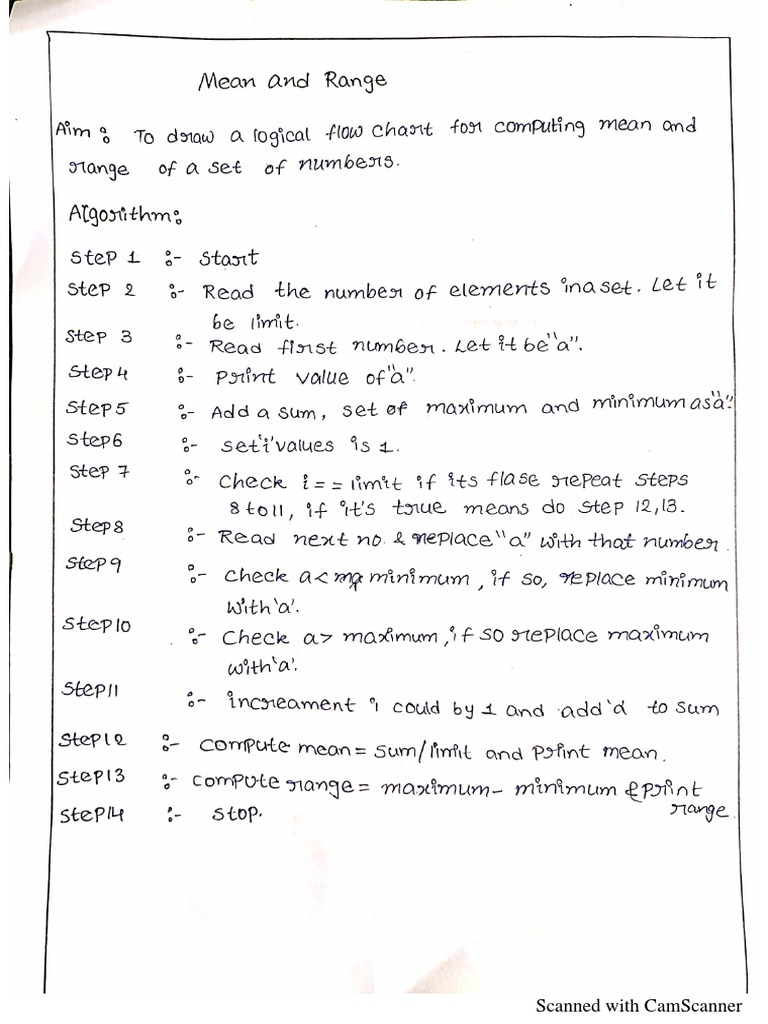 Mean and Range
Aim : To draw a logical flow chart for computing mean and
range of a set of numbers.
Algorithm:
Step 1 :- Start
Step 2 :- Read the number of elements in a set. Let it
be limit.
Step 3 :- Read first number. Let it be "a".
Step 4 :- Print value of "a".
Step 5 :- Add a sum, set of maximum and minimum as "a".
Step 6 :- set 'i' values is 1.
Step 7 :- Check i == limit if its flase repeat steps
8 to 11, if it's true means do step 12, 13.
Step 8 :- Read next no. & replace "a" with that number.
Step 9 :- Check a < minimum, if so, replace minimum
with 'a'.
Step 10 :- Check a > maximum, if so replace maximum
with 'a'.
Step 11 :- increament i could by 1 and add 'd to sum
Step 12 :- compute mean = sum/limit and print mean.
Step 13 :- compute range = maximum - minimum & print
range.
Step 14 :- Stop.
Scanned with CamScanner